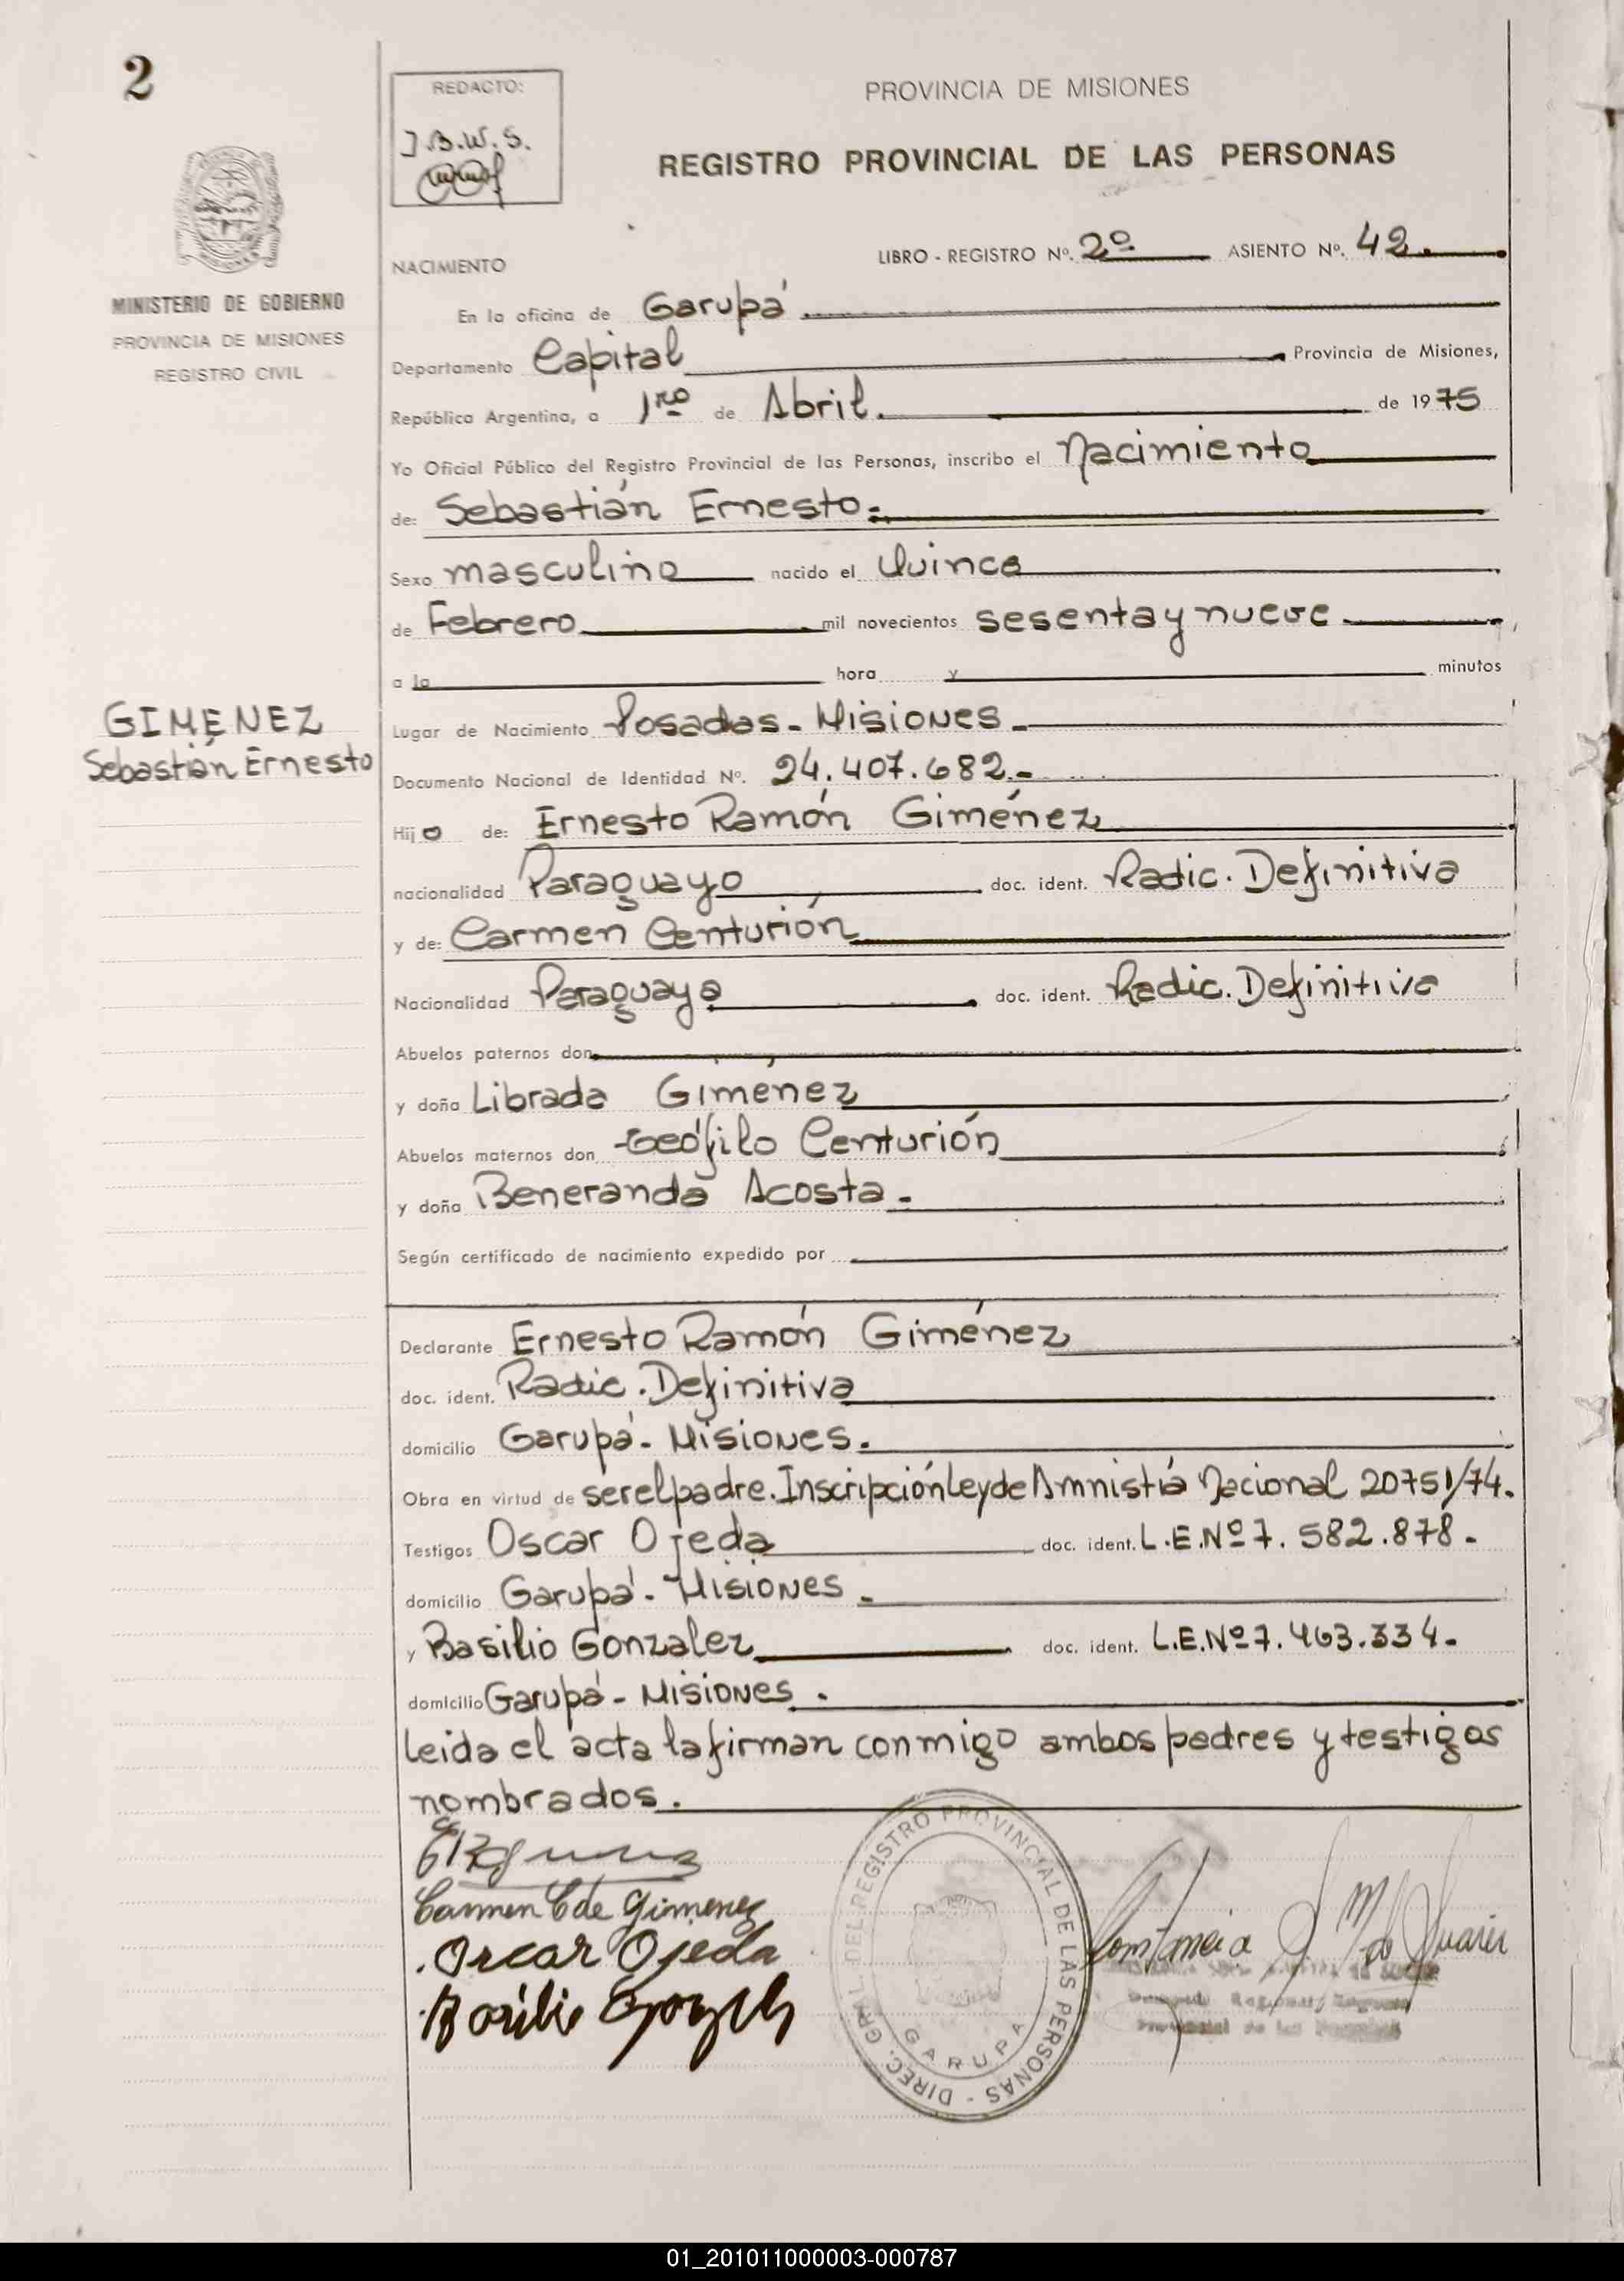 2
REDACTO:
J.B.W.S.
PROVINCIA DE MISIONES
REGISTRO PROVINCIAL DE LAS PERSONAS
MINISTERIO DE GOBIERNO
PROVINCIA DE MISIONES
REGISTRO CIVIL
LIBRO - REGISTRO Nº. 2º ASIENTO Nº. 42.
NACIMIENTO
En la oficina de Garupá
Departamento Capital Provincia de Misiones,
República Argentina, a 1ro de Abril. de 1975
Yo Oficial Público del Registro Provincial de las Personas, inscribo el Nacimiento
de: Sebastián Ernesto.
Sexo masculino nacido el Quince
de Febrero mil novecientos sesenta y nueve
a la hora y minutos
GIMENEZ
Sebastián Ernesto
Lugar de Nacimiento Posadas - Misiones -
Documento Nacional de Identidad Nº. 24.407.682.-
Hijo de: Ernesto Ramón Giménez
nacionalidad Paraguayo doc. ident. Radic. Definitiva
y de: Carmen Centurión
Nacionalidad Paraguaya doc. ident. Radic. Definitiva
Abuelos paternos don
y doña Librada Giménez
Abuelos maternos don Teófilo Centurión
y doña Beneranda Acosta.
Según certificado de nacimiento expedido por
Declarante Ernesto Ramón Giménez
doc. ident. Radic. Definitiva
domicilio Garupá - Misiones.
Obra en virtud de ser el padre. Inscripción Ley de Amnistía Nacional 20751/74.
Testigos Oscar Ojeda doc. ident. L.E.Nº 7.582.878.
domicilio Garupá - Misiones.
y Basilio Gonzalez doc. ident. L.E.Nº 7.463.334.
domicilio Garupá - Misiones.
Leida el acta la firman conmigo ambos padres y testigos
nombrados.
Carmen C de Gimenez
Oscar Ojeda
Basilio
DIREC. GRAL. DEL REGISTRO PROVINCIAL DE LAS PERSONAS -
GARUPA
Constancia
01_201011000003-000787